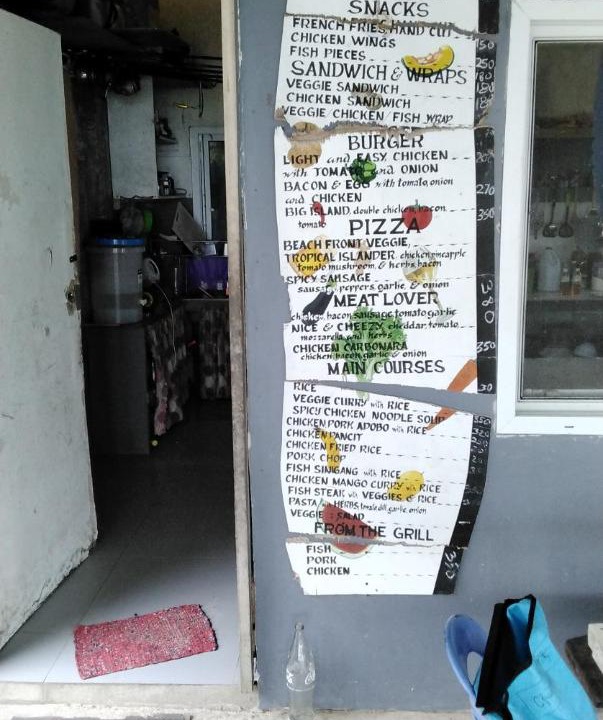 SNACKS
FRENCH FRIES HAND CUT
CHICKEN WINGS 150
FISH PIECES 250
SANDWICH & WRAPS 180
VEGGIE SANDWICH 180
CHICKEN SANDWICH
VEGGIE CHICKEN/FISH WRAP
BURGER
LIGHT and EASY CHICKEN
with TOMATO and ONION
BACON & EGG with tomato, onion 270
and CHICKEN
BIG ISLAND, double chicken, bacon 350
tomato
PIZZA
BEACH FRONT VEGGIE,
TROPICAL ISLANDER chicken, pineapple
tomato mushroom, & herbs, bacon
SPICY SAUSAGE
sausage, peppers, garlic, & onion
MEAT LOVER 380
chicken, bacon, sausage, tomato garlic
NICE & CHEEZY, cheddar, tomato,
mozzarella and herbs
CHICKEN CARBONARA 350
chicken, bacon, garlic & onion
MAIN COURSES
RICE 30
VEGGIE CURRY with RICE
SPICY CHICKEN NOODLE SOUP
CHICKEN PORK ADOBO with RICE
CHICKEN PANCIT
CHICKEN FRIED RICE
PORK CHOP
FISH SINIGANG with RICE
CHICKEN MANGO CURRY with RICE
FISH STEAK with VEGGIES & RICE
PASTA with HERBS, garlic, onion
VEGGIE SALAD
FROM THE GRILL
FISH 350
PORK
CHICKEN